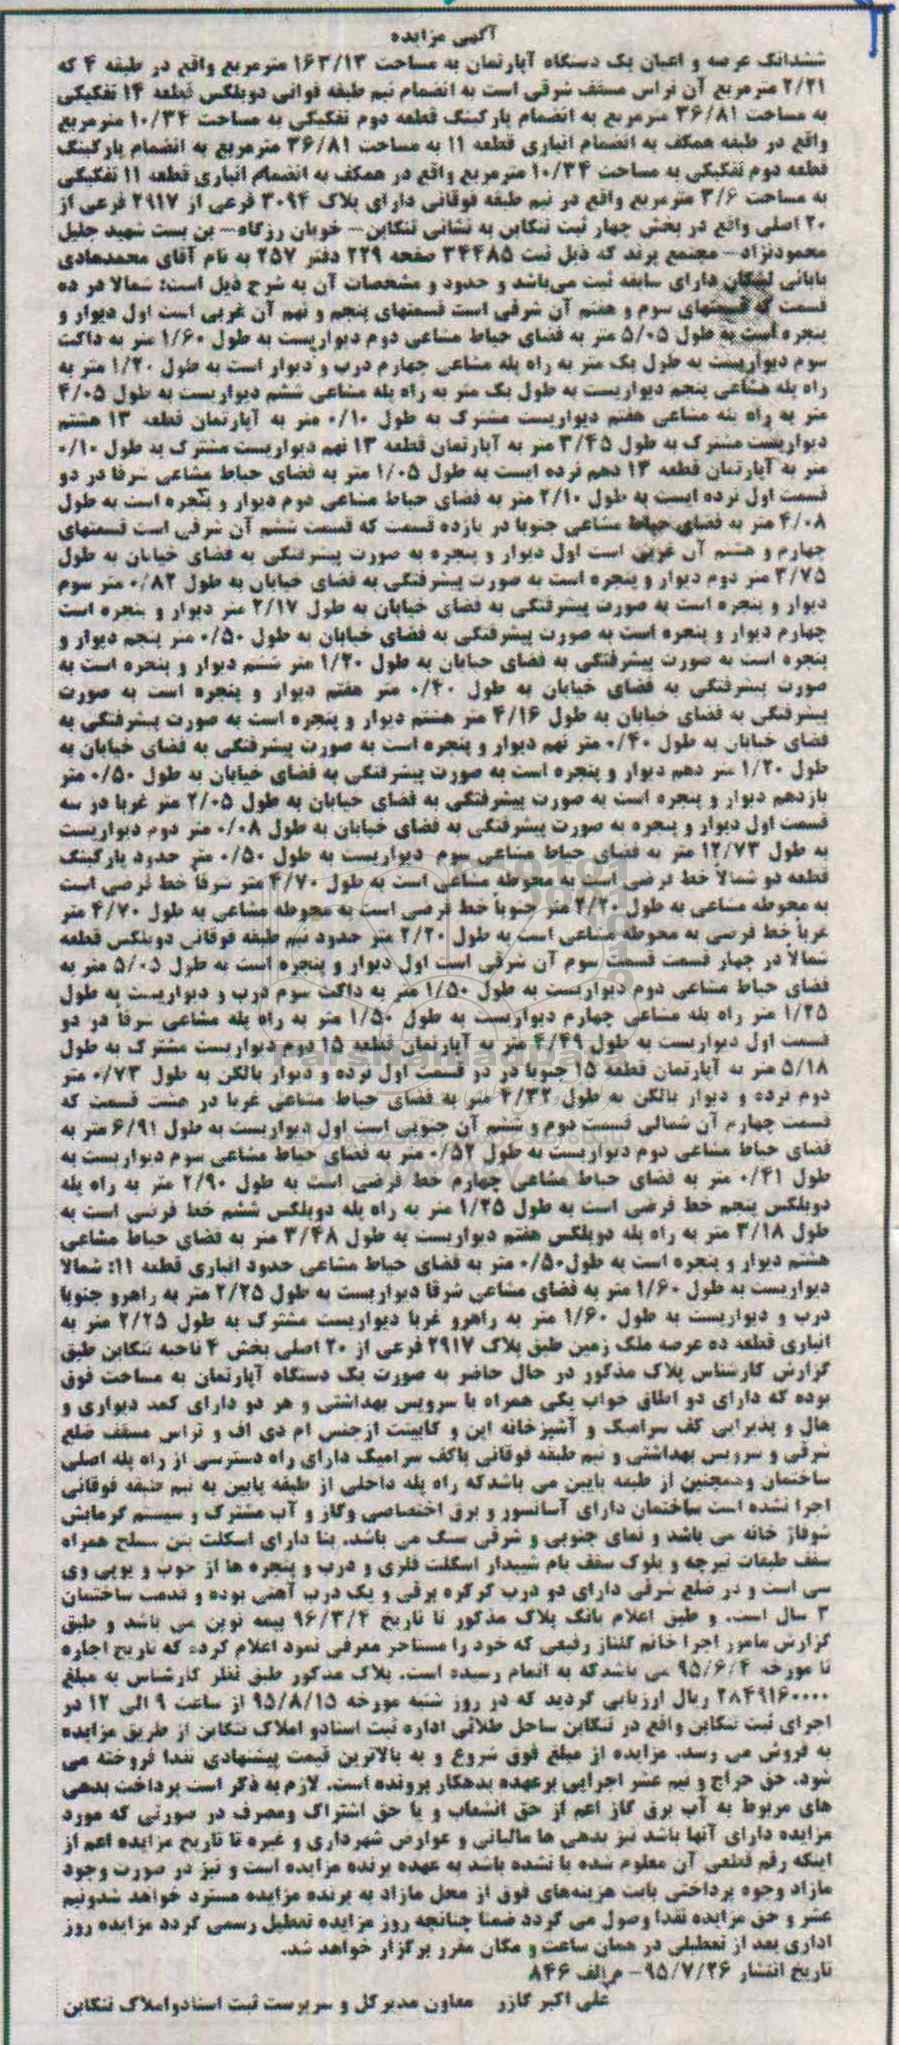 آگهی مزایده
ششدانگ عرصه و اعیان یک دستگاه آپارتمان به مساحت ۱۶۳/۱۳ مترمربع واقع در طبقه ۴ که
۲/۲۱ مترمربع آن تراس مسقف شرقی است به انضمام نیم طبقه فوقانی دوبلکس قطعه ۱۴ تفکیکی
به مساحت ۳۶/۸۱ مترمربع به انضمام پارکینگ قطعه دوم تفکیکی به مساحت ۱۰/۳۴ مترمربع
واقع در طبقه همکف به انضمام انباری قطعه ۱۱ به مساحت ۳۶/۸۱ مترمربع به انضمام پارکینگ
قطعه دوم تفکیکی به مساحت ۱۰/۳۴ مترمربع واقع در همکف به انضمام انباری قطعه ۱۱ تفکیکی
به مساحت ۳/۶ مترمربع واقع در نیم طبقه فوقانی دارای پلاک ۳۰۹۴ فرعی از ۲۹۱۷ فرعی از
۲۰ اصلی واقع در بخش چهار ثبت تنکابن به نشانی تنکابن- خوبان رزگاه- بن بست شهید جلیل
محمودنژاد- مجتمع پرند که ذیل ثبت ۳۴۴۸۵ صفحه ۲۲۹ دفتر ۲۵۷ به نام آقای محمدهادی
بابائی لشکان دارای سابقه ثبت می‌باشد و حدود و مشخصات آن به شرح ذیل است: شمالا در ده
قسمت که قسمتهای سوم و هفتم آن شرقی است قسمتهای پنجم و نهم آن غربی است اول دیوار و
پنجره است به طول ۵/۰۵ متر به فضای حیاط مشاعی دوم دیواریست به طول ۱/۶۰ متر به داکت
سوم دیواریست به طول یک متر به راه پله مشاعی چهارم درب و دیوار است به طول ۱/۲۰ متر به
راه پله مشاعی پنجم دیواریست به طول یک متر به راه پله مشاعی ششم دیواریست به طول ۴/۰۵
متر به راه پله مشاعی هفتم دیواریست مشترک به طول ۰/۱۰ متر به آپارتمان قطعه ۱۳ هشتم
دیواریست مشترک به طول ۳/۴۵ متر به آپارتمان قطعه ۱۳ نهم دیواریست مشترک به طول ۰/۱۰
متر به آپارتمان قطعه ۱۳ دهم نرده ایست به طول ۱/۰۵ متر به فضای حیاط مشاعی شرقا در دو
قسمت اول نرده ایست به طول ۲/۱۰ متر به فضای حیاط مشاعی دوم دیوار و پنجره است به طول
۴/۰۸ متر به فضای حیاط مشاعی جنوبا در یازده قسمت که قسمت ششم آن شرقی است قسمتهای
چهارم و هشتم آن غربی است اول دیوار و پنجره به صورت پیشرفتگی به فضای خیابان به طول
۳/۷۵ متر دوم دیوار و پنجره است به صورت پیشرفتگی به فضای خیابان به طول ۰/۸۲ متر سوم
دیوار و پنجره است به صورت پیشرفتگی به فضای خیابان به طول ۲/۱۷ متر دیوار و پنجره است
چهارم دیوار و پنجره است به صورت پیشرفتگی به فضای خیابان به طول ۰/۵۰ متر پنجم دیوار و
پنجره است به صورت پیشرفتگی به فضای خیابان به طول ۱/۲۰ متر ششم دیوار و پنجره است به
صورت پیشرفتگی به فضای خیابان به طول ۰/۴۰ متر هفتم دیوار و پنجره است به صورت
پیشرفتگی به فضای خیابان به طول ۴/۱۶ متر هشتم دیوار و پنجره است به صورت پیشرفتگی به
فضای خیابان به طول ۰/۴۰ متر نهم دیوار و پنجره است به صورت پیشرفتگی به فضای خیابان به
طول ۱/۲۰ متر دهم دیوار و پنجره است به صورت پیشرفتگی به فضای خیابان به طول ۰/۵۰ متر
یازدهم دیوار و پنجره است به صورت پیشرفتگی به فضای خیابان به طول ۲/۰۵ متر غربا در سه
قسمت اول دیوار و پنجره به صورت پیشرفتگی به فضای خیابان به طول ۰/۰۸ متر دوم دیواریست
به طول ۱۲/۷۳ متر به فضای حیاط مشاعی سوم دیواریست به طول ۰/۵۰ متر حدود پارکینگ
قطعه دو شمالا خط فرضی است به محوطه مشاعی است به طول ۴/۷۰ متر شرقا خط فرضی است
به محوطه مشاعی به طول ۲/۲۰ متر جنوبا خط فرضی است به محوطه مشاعی به طول ۴/۷۰ متر
غربا خط فرضی به محوطه مشاعی است به طول ۲/۲۰ متر حدود نیم طبقه فوقانی دوبلکس قطعه
شمالا در چهار قسمت قسمت سوم آن شرقی است اول دیوار و پنجره است به طول ۵/۰۵ متر به
فضای حیاط مشاعی دوم دیواریست به طول ۱/۵۰ متر به داکت سوم درب و دیواریست به طول
۱/۲۵ متر راه پله مشاعی چهارم دیواریست به طول ۱/۵۰ متر به راه پله مشاعی شرقا در دو
قسمت اول دیواریست به طول ۴/۴۹ متر به آپارتمان قطعه ۱۵ دوم دیواریست مشترک به طول
۵/۱۸ متر به آپارتمان قطعه ۱۵ جنوبا در دو قسمت اول نرده و دیوار بالکن به طول ۰/۷۳ متر
دوم نرده و دیوار بالکن به طول ۴/۳۲ متر به فضای حیاط مشاعی غربا در هشت قسمت که
قسمت چهارم آن شمالی قسمت دوم و ششم آن جنوبی است اول دیواریست به طول ۶/۹۱ متر به
فضای حیاط مشاعی دوم دیواریست به طول ۰/۵۲ متر به فضای حیاط مشاعی سوم دیواریست به
طول ۰/۴۱ متر به فضای حیاط مشاعی چهارم خط فرضی است به طول ۲/۹۰ متر به راه پله
دوبلکس پنجم خط فرضی است به طول ۱/۲۵ متر به راه پله دوبلکس ششم خط فرضی است به
طول ۳/۱۸ متر به راه پله دوبلکس هفتم دیواریست به طول ۳/۴۸ متر به فضای حیاط مشاعی
هشتم دیوار و پنجره است به طول ۰/۵۰ متر به فضای حیاط مشاعی حدود انباری قطعه ۱۱: شمالا
دیواریست به طول ۱/۶۰ متر به فضای مشاعی شرقا دیواریست به طول ۲/۲۵ متر به راهرو جنوبا
درب و دیواریست به طول ۱/۶۰ متر به راهرو غربا دیواریست مشترک به طول ۲/۲۵ متر به
انباری قطعه ده عرصه ملک زمین طبق پلاک ۲۹۱۷ فرعی از ۲۰ اصلی بخش ۴ ناحیه تنکابن طبق
گزارش کارشناس پلاک مذکور در حال حاضر به صورت یک دستگاه آپارتمان به مساحت فوق
بوده که دارای دو اطاق خواب یکی همراه با سرویس بهداشتی و هر دو دارای کمد دیواری و
هال و پذیرایی کف سرامیک و آشپزخانه اپن و کابینت ازجنس ام دی اف و تراس مسقف ضلع
شرقی و سرویس بهداشتی و نیم طبقه فوقانی باکف سرامیک دارای راه دسترسی از راه پله اصلی
ساختمان وهمچنین از طبقه پایین می باشدکه راه پله داخلی از طبقه پایین به نیم طبقه فوقانی
اجرا نشده است ساختمان دارای آسانسور و برق اختصاصی وگاز و آب مشترک و سیستم گرمایش
شوفاژ خانه می باشد و نمای جنوبی و شرقی سنگ می باشد. بنا دارای اسکلت بتن مسلح همراه
سقف طبقات تیرچه و بلوک سقف بام شیبدار اسکلت فلزی و درب و پنجره ها از چوب و یوپی وی
سی است و در ضلع شرقی دارای دو درب کرکره برقی و یک درب آهنی بوده و قدمت ساختمان
۳ سال است. و طبق اعلام بانک پلاک مذکور تا تاریخ ۹۶/۳/۴ بیمه نوین می باشد و طبق
گزارش مامور اجرا خانم گلناز رفیعی که خود را مستاجر معرفی نمود اعلام کرده که تاریخ اجاره
تا مورخه ۹۵/۶/۴ می باشدکه به اتمام رسیده است. پلاک مذکور طبق نظر کارشناس به مبلغ
۲۸۴۹۱۶۰۰۰۰ ریال ارزیابی گردید که در روز شنبه مورخه ۹۵/۸/۱۵ از ساعت ۹ الی ۱۲ در
اجرای ثبت تنکابن واقع در تنکابن ساحل طلائی اداره ثبت اسنادو املاک تنکابن از طریق مزایده
به فروش می رسد. مزایده از مبلغ فوق شروع و به بالاترین قیمت پیشنهادی نقدا فروخته می
شود. حق حراج و نیم عشر اجرایی برعهده بدهکار پرونده است. لازم به ذکر است پرداخت بدهی
های مربوط به آب برق گاز اعم از حق انشعاب و یا حق اشتراک ومصرف در صورتی که مورد
مزایده دارای آنها باشد نیز بدهی ها مالیاتی و عوارض شهرداری و غیره تا تاریخ مزایده اعم از
اینکه رقم قطعی آن معلوم شده یا نشده باشد به عهده برنده مزایده است و نیز در صورت وجود
مازاد وجوه پرداختی بابت هزینه‌های فوق از محل مازاد به برنده مزایده مسترد خواهد شدونیم
عشر و حق مزایده نقدا وصول می گردد ضمنا چنانچه روز مزایده تعطیل رسمی گردد مزایده روز
اداری بعد از تعطیلی در همان ساعت و مکان مقرر برگزار خواهد شد.
تاریخ انتشار ۹۵/۷/۲۶- م‌الف ۸۴۶
علی اکبر گازر معاون مدیرکل و سرپرست ثبت اسنادواملاک تنکابن